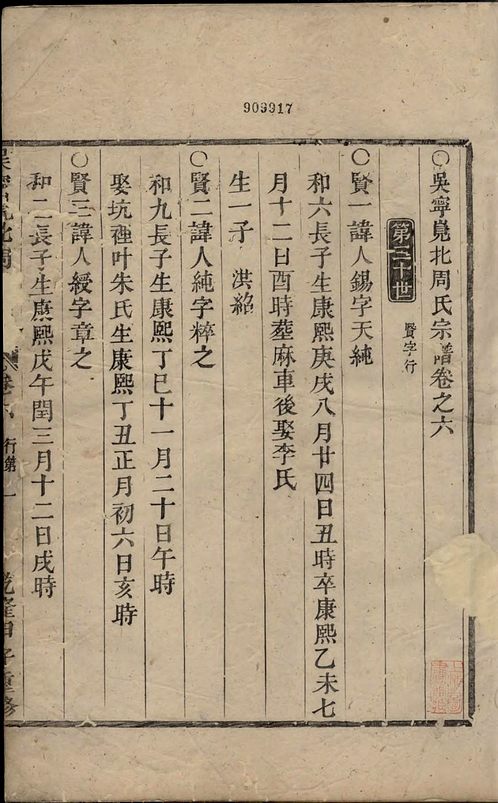 909917
○吳寧鳧北周氏宗譜卷之六
第三十世
賢字行
○賢一諱人錫字天純
和六長子生康熙庚戌八月廿四日丑時卒康熙乙未七
月十二日酉時塟麻車後娶李氏
生一子 洪紹
○賢二諱人純字粹之
和九長子生康熙丁巳十一月二十日午時
娶坑裡叶朱氏生康熙丁丑正月初六日亥時
○賢三諱人綬字章之
和二長子生康熙戊午閏三月十二日戌時
行第一